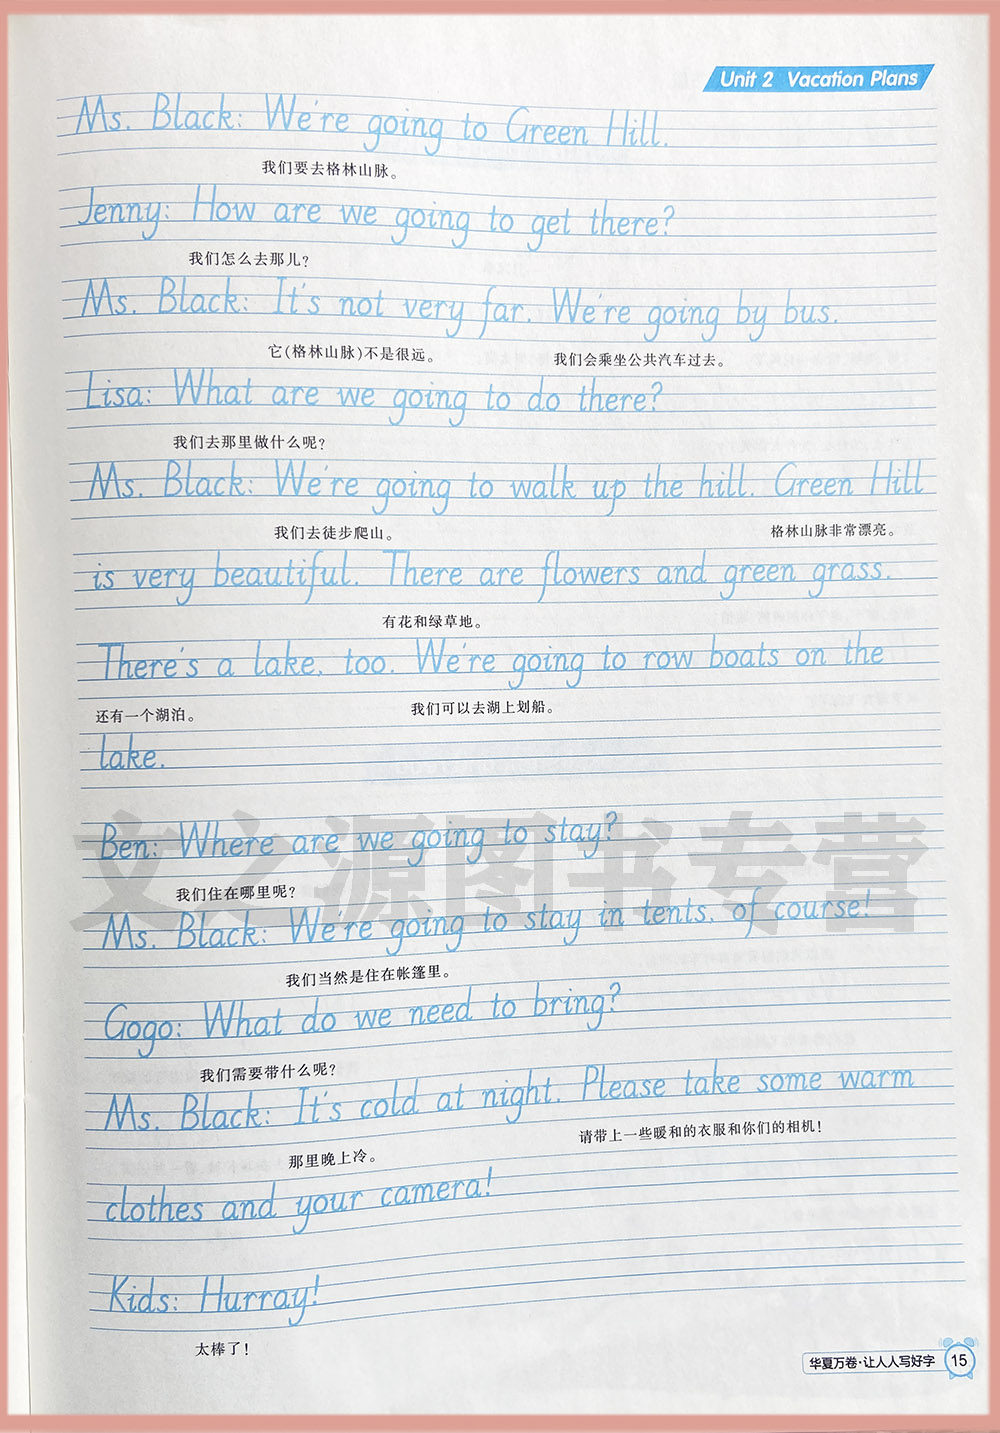 Unit 2 Vacation Plans
Ms. Black: We're going to Green Hill.
我们要去格林山脉。
Jenny: How are we going to get there?
我们怎么去那儿?
Ms. Black: It's not very far. We're going by bus.
它(格林山脉)不是很远。 我们会乘坐公共汽车过去。
Lisa: What are we going to do there?
我们去那里做什么呢?
Ms. Black: We're going to walk up the hill. Green Hill
我们去徒步爬山。 格林山脉非常漂亮。
is very beautiful. There are flowers and green grass.
有花和绿草地。
There's a lake, too. We're going to row boats on the
还有一个湖泊。 我们可以去湖上划船。
lake.
文之源图书专营
Ben: Where are we going to stay?
我们住在哪里呢?
Ms. Black: We're going to stay in tents, of course!
我们当然是住在帐篷里。
Gogo: What do we need to bring?
我们需要带什么呢?
Ms. Black: It's cold at night. Please take some warm
那里晚上冷。 请带上一些暖和的衣服和你们的相机!
clothes and your camera!
Kids: Hurray!
太棒了!
华夏万卷·让人人写好字 15